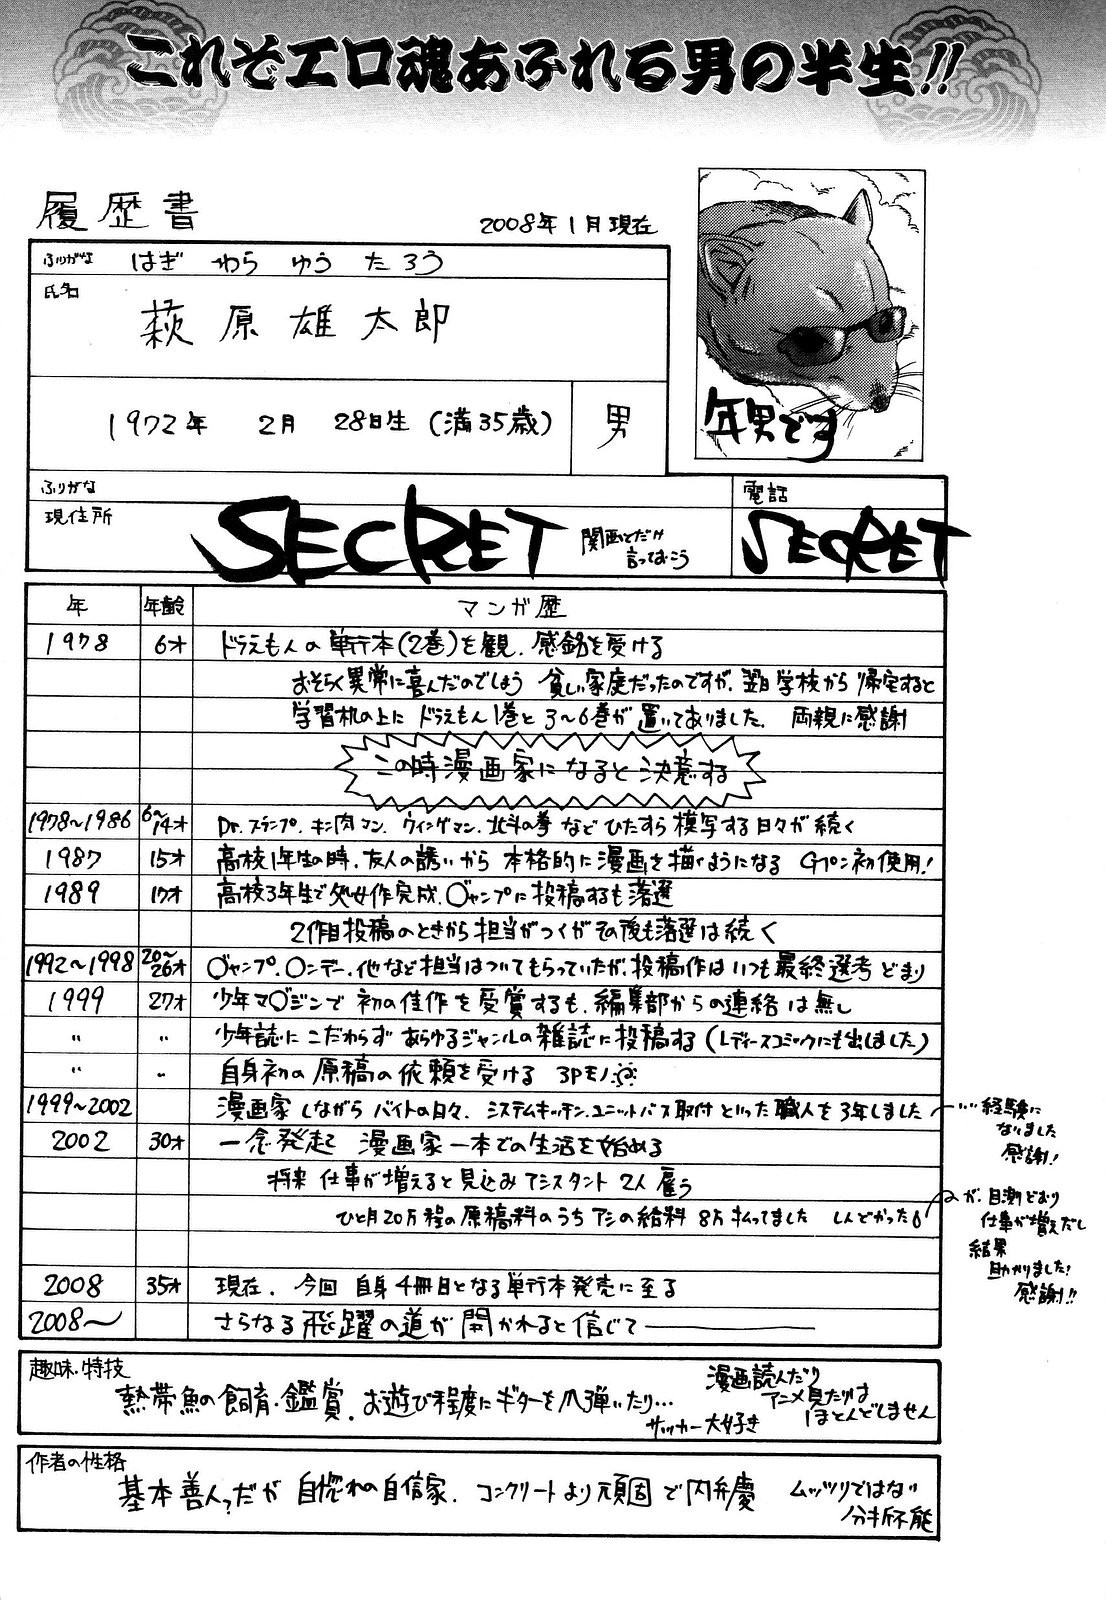 これぞエロ魂あふれる男の半生!!
履歴書
2008年1月現在
ふりがな はぎ わら ゆう た ろう
氏名
萩原雄太郎
1972年 2月 28日生 (満35歳)
男
年男です
ふりがな
現住所
SECRET
関西とだけ
言っておこう
電話
SECRET
年 年齢 マンガ歴
1978 6才 ドラえもんの単行本(2巻)を観、感銘を受ける
おそらく異常に喜んだのでしょう 貧しい家庭だったのですが、翌日学校から帰宅すると
学習机の上にドラえもん1巻と3〜6巻が置いてありました。 両親に感謝
この時漫画家になると決意する
1978〜1986 6〜14才 Dr.スランプ、キン肉マン、ウイングマン、北斗の拳などひたすら模写する日々が続く
1987 15才 高校1年生の時、友人の誘いから本格的に漫画を描くようになる Gペン初使用!
1989 17才 高校3年生で処女作完成、〇ャンプに投稿するも落選
2作目投稿のときから担当がつくがその後も落選は続く
1992〜1998 20〜26才 〇ャンプ、〇ンデー、他など担当はついてもらっていたが、投稿作はいつも最終選考どまり
1999 27才 少年マ〇ジンで初の佳作を受賞するも、編集部からの連絡は無し
〃 〃 少年誌にこだわらずあらゆるジャンルの雑誌に投稿する(レディースコミックにも出しました)
〃 〃 自身初の原稿の依頼を受ける 3Pモノ
1999〜2002 漫画家しながらバイトの日々、システムキッチン、ユニットバス取付といった職人を3年しました
…経験に
なりました
感謝!
2002 30才 一念発起 漫画家一本での生活を始める
将来仕事が増えると見込みアシスタント2人雇う
ひと月20万程の原稿料のうちアシの給料8万払ってました しんどかった
が、目測どおり
仕事が増えだし
結果
助かりました!
感謝!!
2008 35才 現在、今回 自身4冊目となる単行本発売に至る
2008〜 さらなる飛躍の道が開かれると信じて――
趣味・特技
熱帯魚の飼育・鑑賞、お遊び程度にギターを爪弾いたり…
サッカー大好き
漫画読んだり
アニメ見たりは
ほとんどしません
作者の性格
基本善人だが自惚れの自信家、コンクリートより頑固で内弁慶
ムッツリではない
分析不能